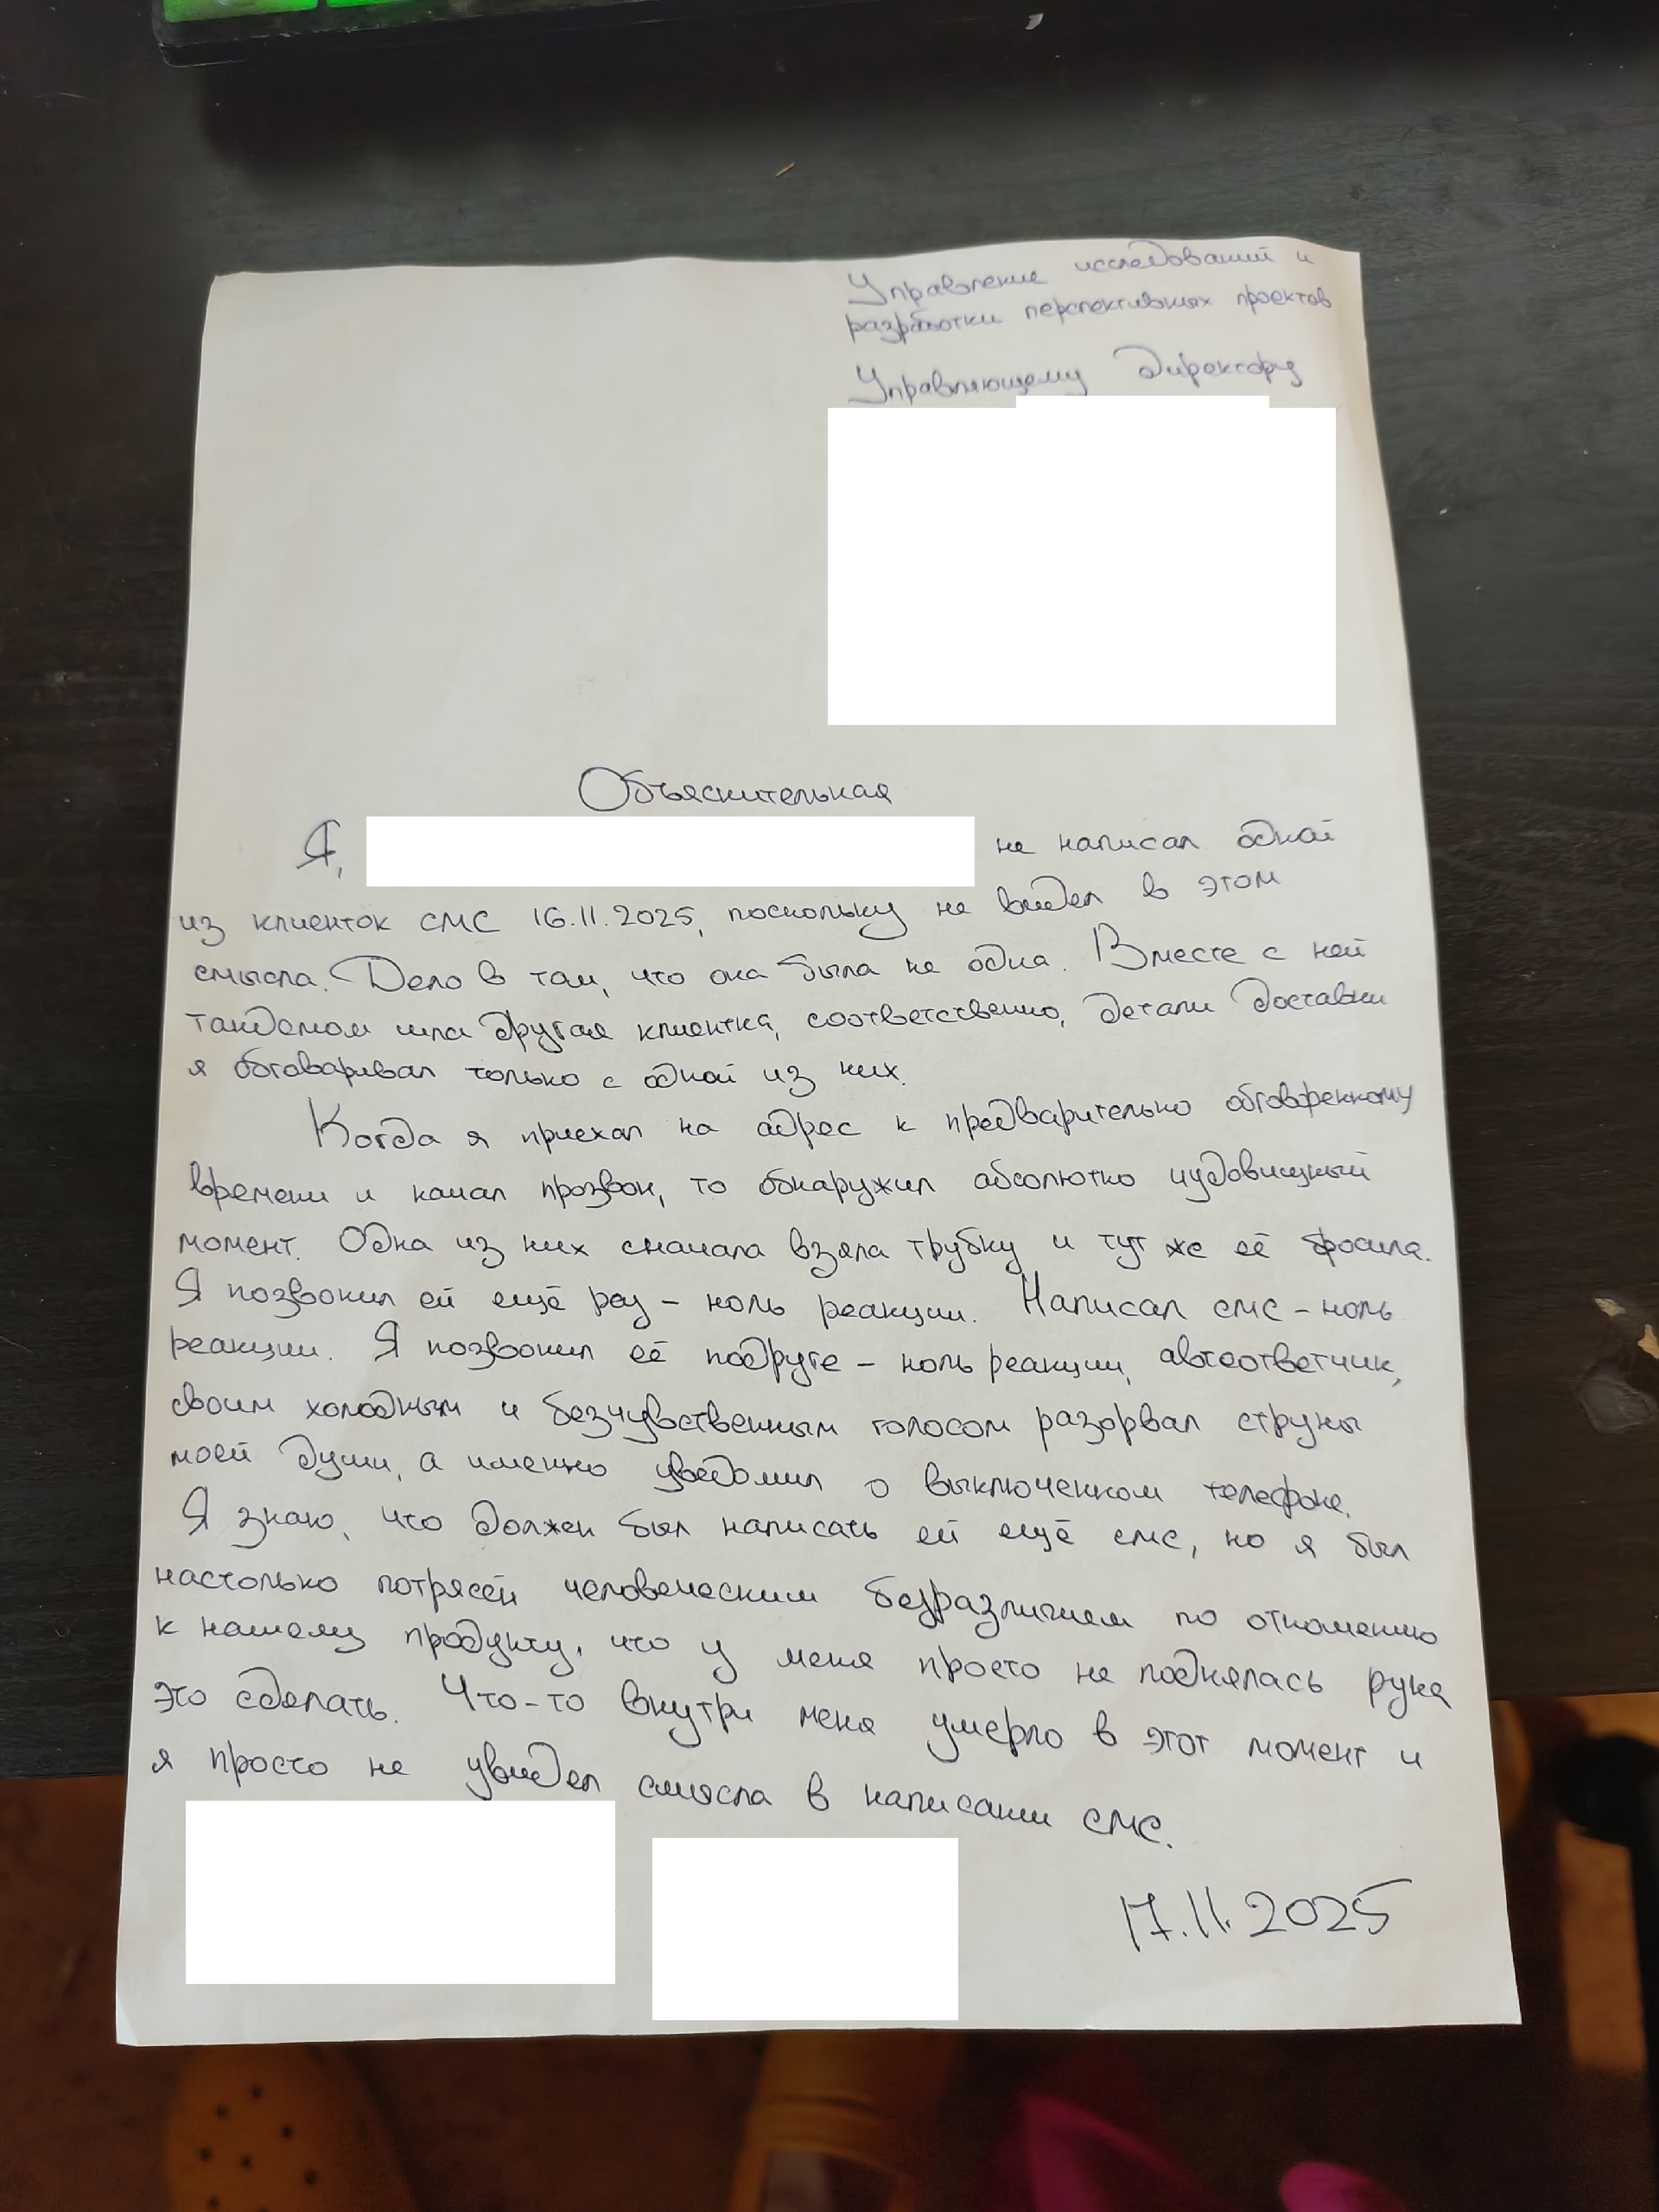 Управление исследований и
разработки перспективных проектов
Управляющему директору
Объяснительная
Я, не написал одной
из клиенток смс 16.11.2025, поскольку не видел в этом
смысла. Дело в том, что она была не одна. Вместе с ней
тандемом шла другая клиентка, соответственно, детали доставки
я обговаривал только с одной из них.
Когда я приехал на адрес к предварительно обговоренному
времени и начал прозвон, то обнаружил абсолютно чудовищный
момент. Одна из них сначала взяла трубку и тут же её бросила.
Я позвонил ей ещё раз – ноль реакции. Написал смс – ноль
реакции. Я позвонил её подруге – ноль реакции, автоответчик,
своим холодным и безчувственным голосом разорвал струны
моей души, а именно уведомил о выключенном телефоне.
Я знаю, что должен был написать ей ещё смс, но я был
настолько потрясён человеческим безразличием по отношению
к нашему продукту, что у меня просто не поднялась рука
это сделать. Что-то внутри меня умерло в этот момент и
я просто не увидел смысла в написании смс.
17.11.2025